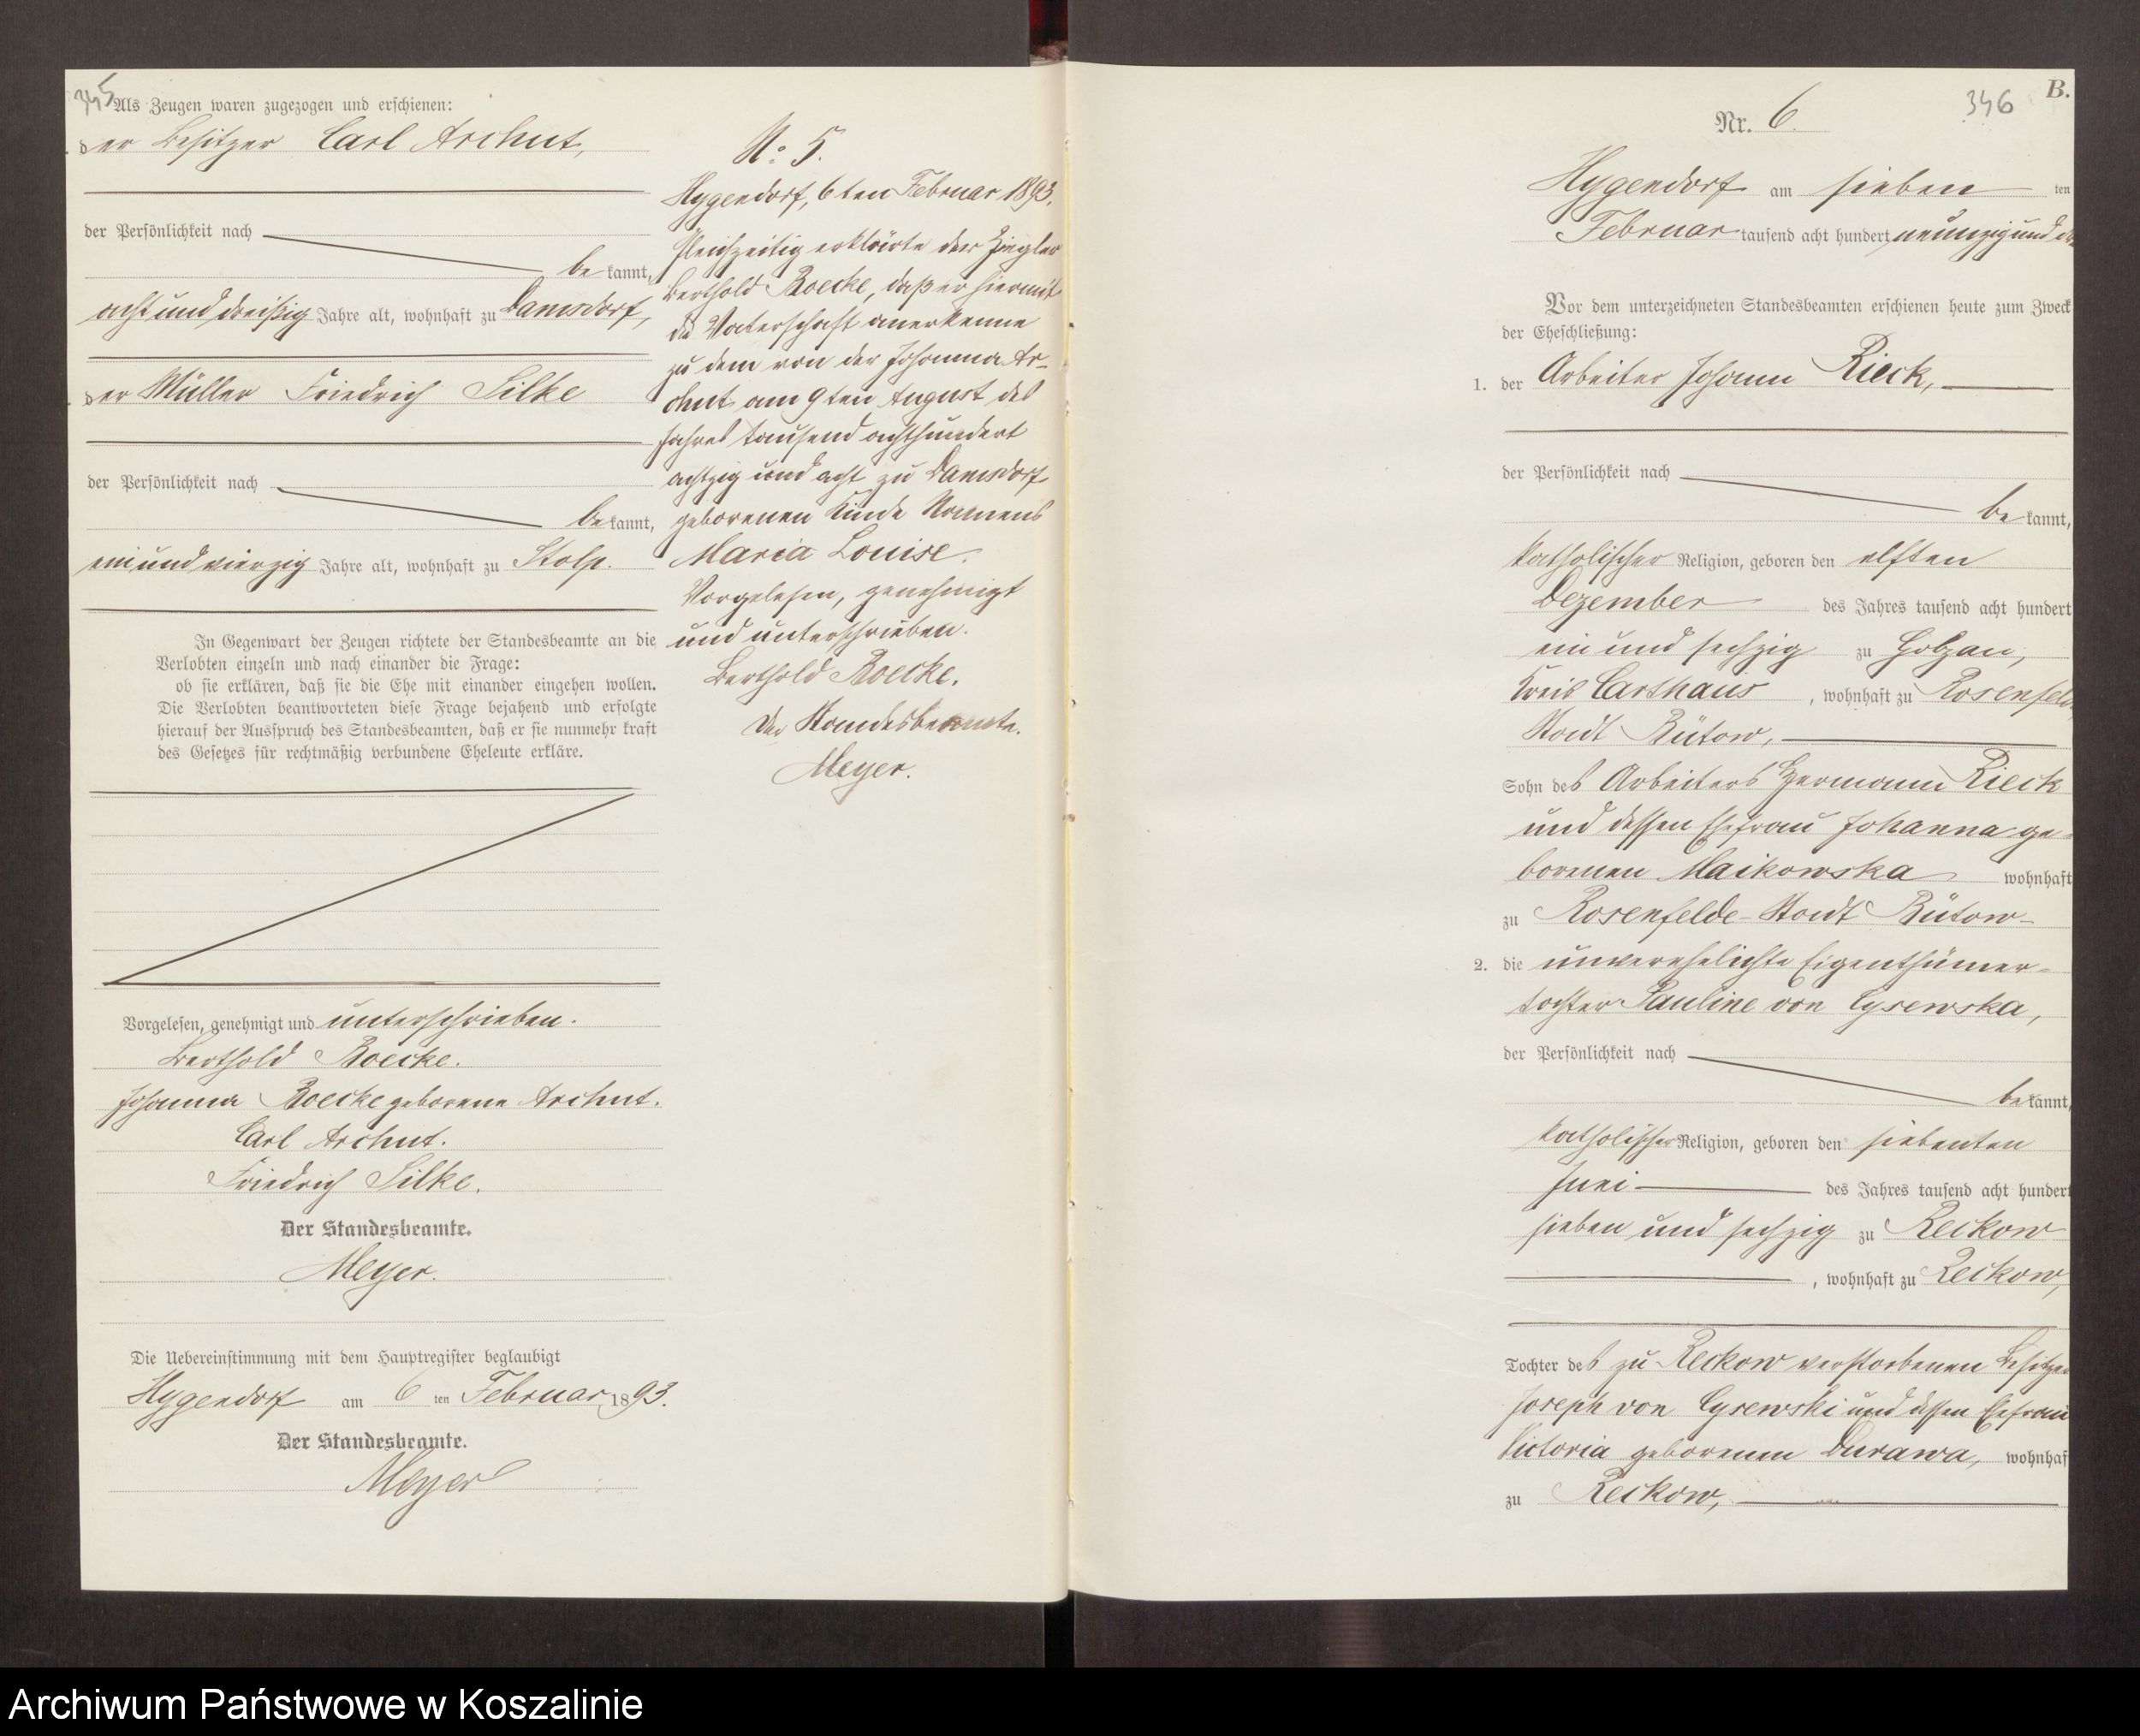 345
Als Zeugen waren zugezogen und erschienen:
der Besitzer Carl Archut,
der Persönlichkeit nach
be kannt,
acht und dreißig Jahre alt, wohnhaft zu Damsdorf,
der Müller Friedrich Silke
der Persönlichkeit nach
be kannt,
ein und vierzig Jahre alt, wohnhaft zu Stolp.
In Gegenwart der Zeugen richtete der Standesbeamte an die
Verlobten einzeln und nach einander die Frage:
ob sie erklären, daß sie die Ehe mit einander eingehen wollen.
Die Verlobten beantworteten diese Frage bejahend und erfolgte
hierauf der Ausspruch des Standesbeamten, daß er sie nunmehr kraft
des Gesetzes für rechtmäßig verbundene Eheleute erkläre.
Vorgelesen, genehmigt und unterschrieben.
Berthold Boecke.
Johanna Boecke geborene Archut.
Carl Archut.
Friedrich Silke.
Der Standesbeamte.
Meyer.
Die Uebereinstimmung mit dem Hauptregister beglaubigt
Hygendorf am 6 ten Februar 1893.
Der Standesbeamte.
Meyer
No 5.
Hygendorf, 6ten Februar 1893.
Gleichzeitig erklärte der Ziegler
Berthold Boecke, daß er hiermit
die Vaterschaft anerkenne
zu dem von der Johanna Ar-
chut am 9ten August des
Jahres tausend achthundert
achtzig und acht zu Damsdorf
geborenen Kinde Namens
Maria Louise.
Vorgelesen, genehmigt
und unterschrieben.
Berthold Boecke.
Der Standesbeamte.
Meyer.
B.
346
Nr. 6.
Hygendorf am sieben ten
Februar tausend acht hundert neunzig und
Vor dem unterzeichneten Standesbeamten erschienen heute zum Zweck
der Eheschließung:
1. der Arbeiter Johann Rieck,
der Persönlichkeit nach
be kannt,
katholischer Religion, geboren den elften
Dezember des Jahres tausend acht hundert
ein und sechzig zu
Kreis Carthaus, wohnhaft zu Rosenfelde
Stadt Bütow,
Sohn des Arbeiters Hermann Rieck
und dessen Ehefrau Johanna ge-
borenen Maikowska wohnhaft
zu Rosenfelde-Stadt Bütow-
2. die unverehelichte Eigenthümer-
tochter Pauline von Cysewska,
der Persönlichkeit nach
be kannt,
katholischer Religion, geboren den siebenten
Juni des Jahres tausend acht hundert
sieben und sechzig zu Reckow
, wohnhaft zu Reckow,
Tochter des zu Reckow verstorbenen Besitzers
Joseph von Cysewski und dessen Ehefrau
Victoria geborenen Durawa, wohnhaf
zu Reckow,
Archiwum Państwowe w Koszalinie